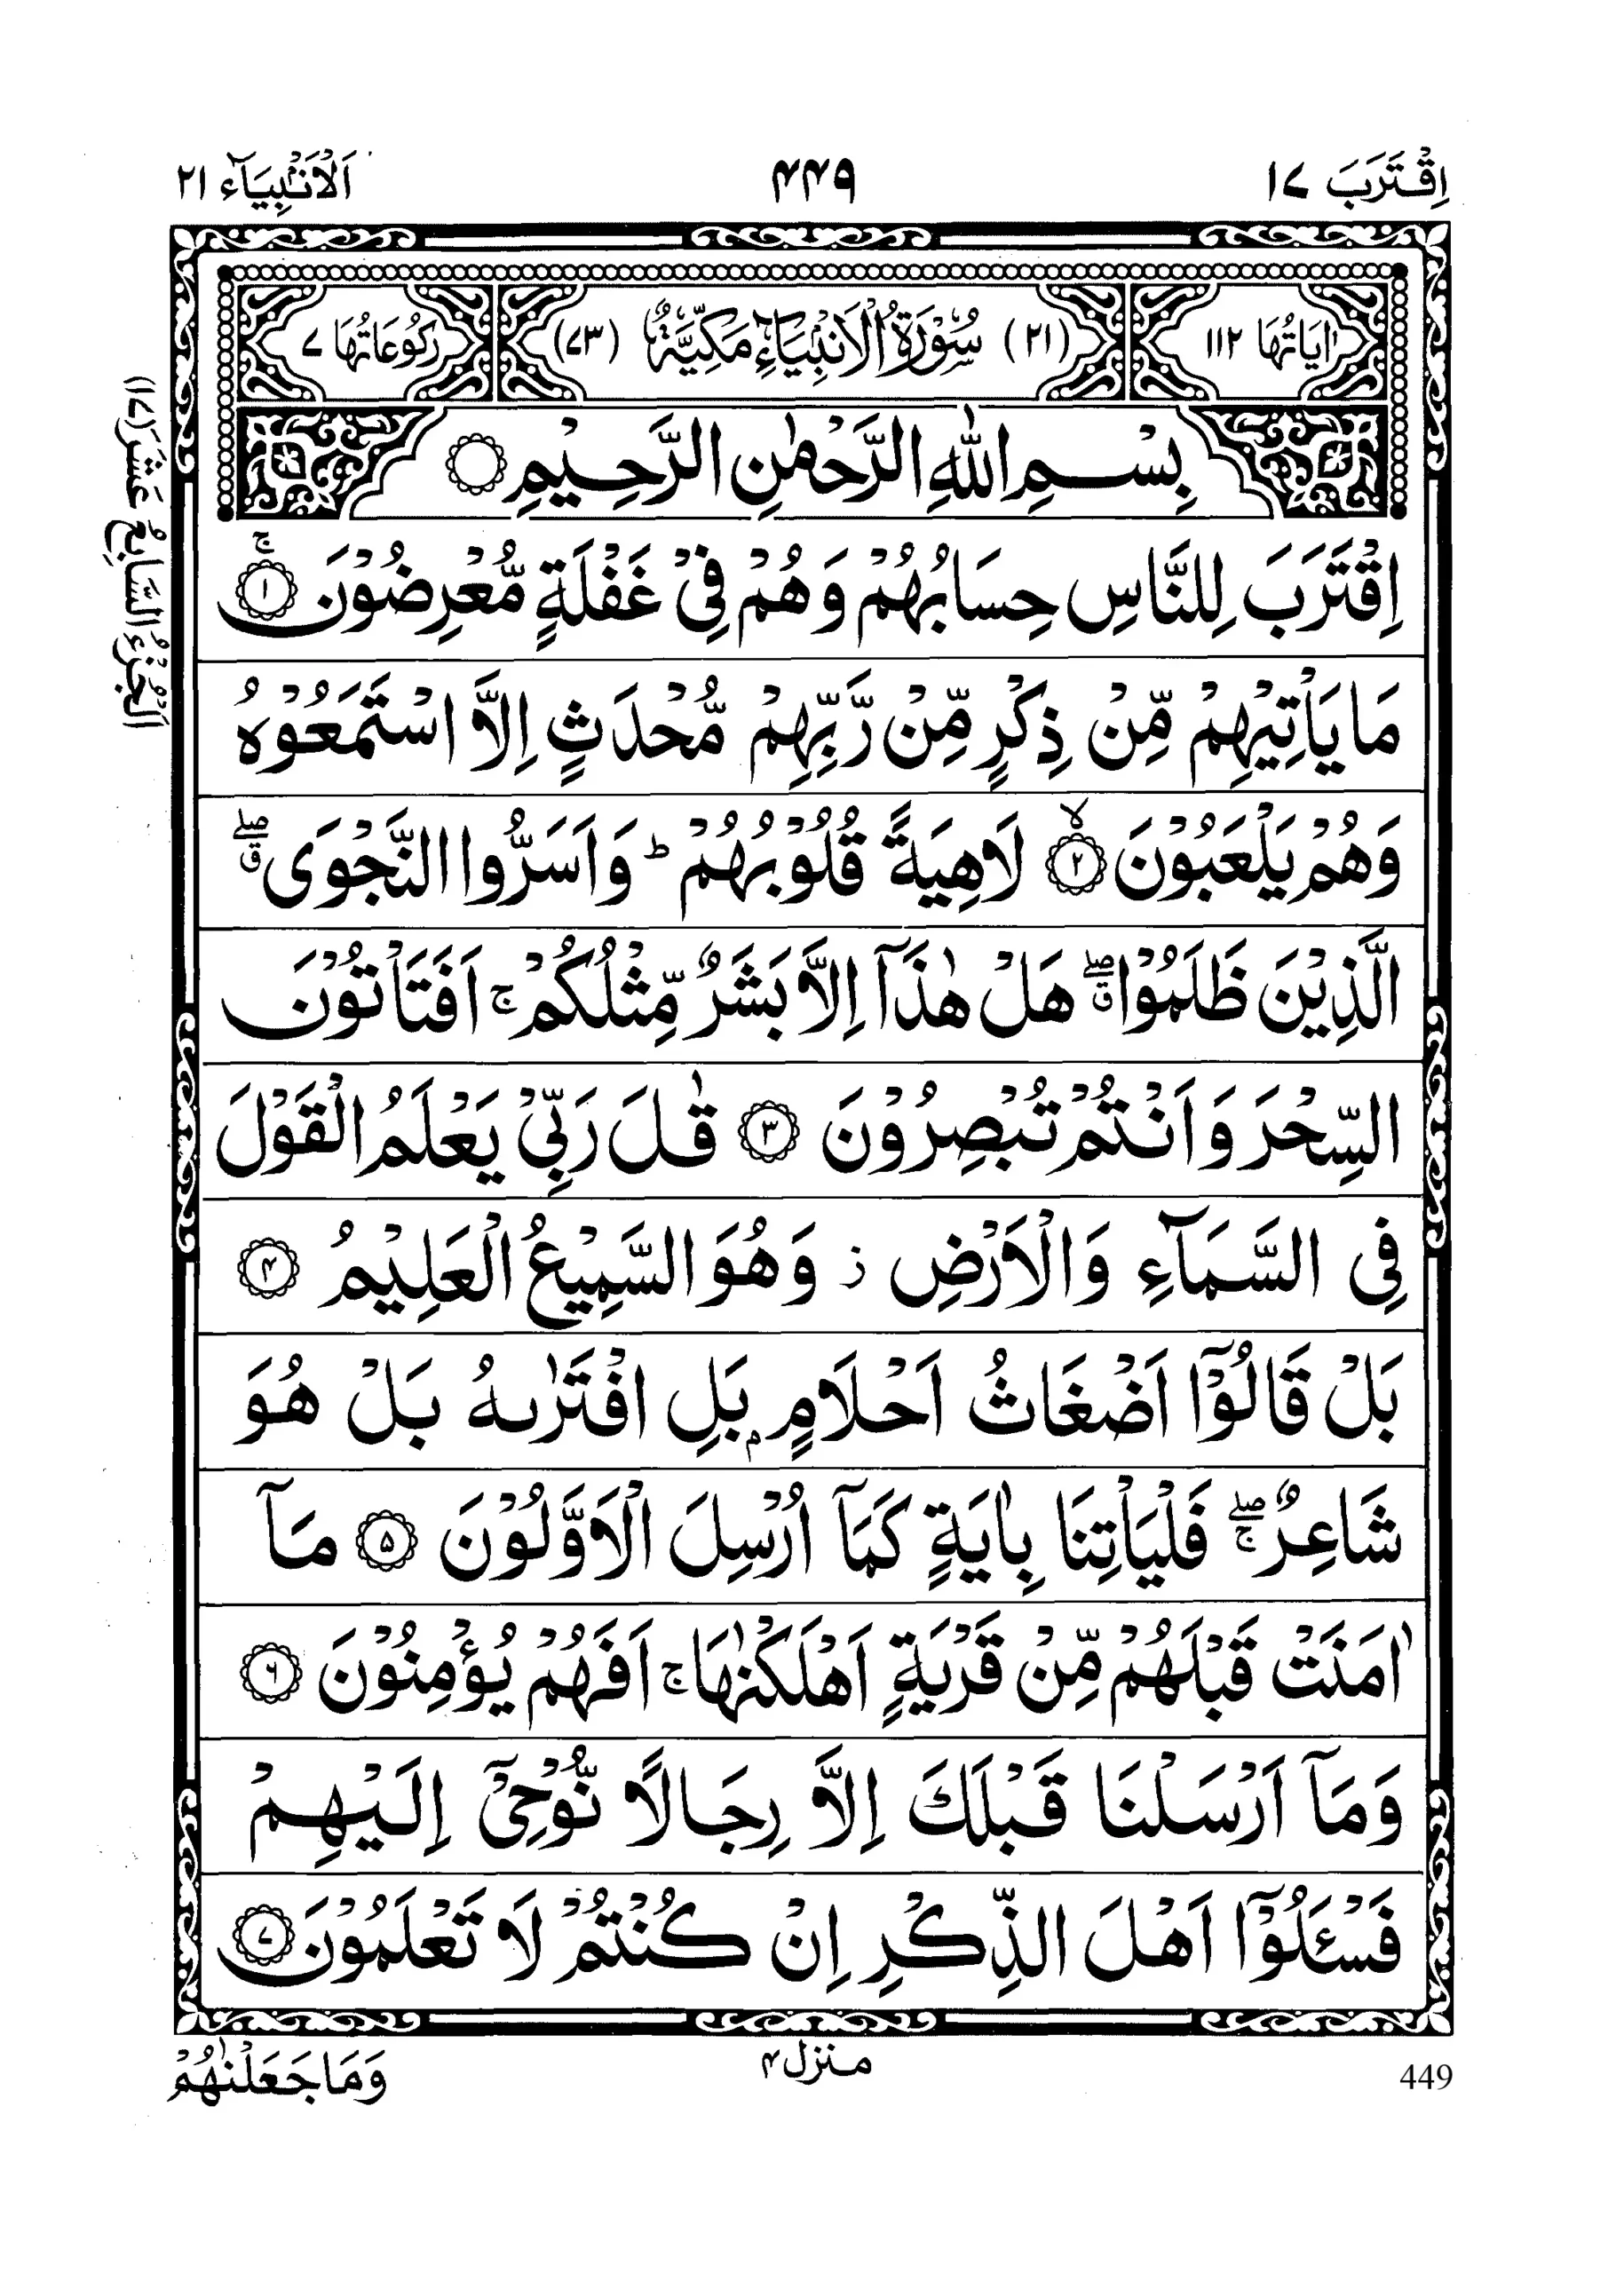 اِقْتَرَبَ ١٧
٤٤٩
اَلْاَنْۢبِيَآء ٢١
اٰيَاتُهَا ١١٢
(٢١) سُوْرَةُ الْاَنْۢبِيَآءِ مَكِّيَّةٌ (٧٣)
رُكُوْعَاتُهَا ٧
بِسْمِ اللّٰهِ الرَّحْمٰنِ الرَّحِيْمِ ۝
اِقْتَرَبَ لِلنَّاسِ حِسَابُهُمْ وَهُمْ فِيْ غَفْلَةٍ مُّعْرِضُوْنَ ۚ﴿١﴾
مَا يَاْتِيْهِمْ مِّنْ ذِكْرٍ مِّنْ رَّبِّهِمْ مُّحْدَثٍ اِلَّا اسْتَمَعُوْهُ
وَهُمْ يَلْعَبُوْنَ ۙ﴿٢﴾ لَاهِيَةً قُلُوْبُهُمْ ؕ وَاَسَرُّوا النَّجْوَى ۖۗ
الَّذِيْنَ ظَلَمُوْا ۖۗ هَلْ هٰذَآ اِلَّا بَشَرٌ مِّثْلُكُمْ ۚ اَفَتَاْتُوْنَ
السِّحْرَ وَاَنْتُمْ تُبْصِرُوْنَ ﴿٣﴾ قٰلَ رَبِّيْ يَعْلَمُ الْقَوْلَ
فِى السَّمَآءِ وَالْاَرْضِ ز وَهُوَ السَّمِيْعُ الْعَلِيْمُ ﴿٤﴾
بَلْ قَالُوْٓا اَضْغَاثُ اَحْلَامٍۭ بَلِ افْتَرٰىهُ بَلْ هُوَ
شَاعِرٌ ۖۚ فَلْيَاْتِنَا بِاٰيَةٍ كَمَآ اُرْسِلَ الْاَوَّلُوْنَ ﴿٥﴾ مَآ
اٰمَنَتْ قَبْلَهُمْ مِّنْ قَرْيَةٍ اَهْلَكْنٰهَا ۚ اَفَهُمْ يُؤْمِنُوْنَ ﴿٦﴾
وَمَآ اَرْسَلْنَا قَبْلَكَ اِلَّا رِجَالًا نُّوْحِيْٓ اِلَيْهِمْ
فَسْـَٔلُوْٓا اَهْلَ الذِّكْرِ اِنْ كُنْتُمْ لَا تَعْلَمُوْنَ ﴿٧﴾
اَلْجُزْءُ السَّابِعُ عَشَرَ (١٧)
449
منزل ٤
وَمَا جَعَلْنٰهُمْ